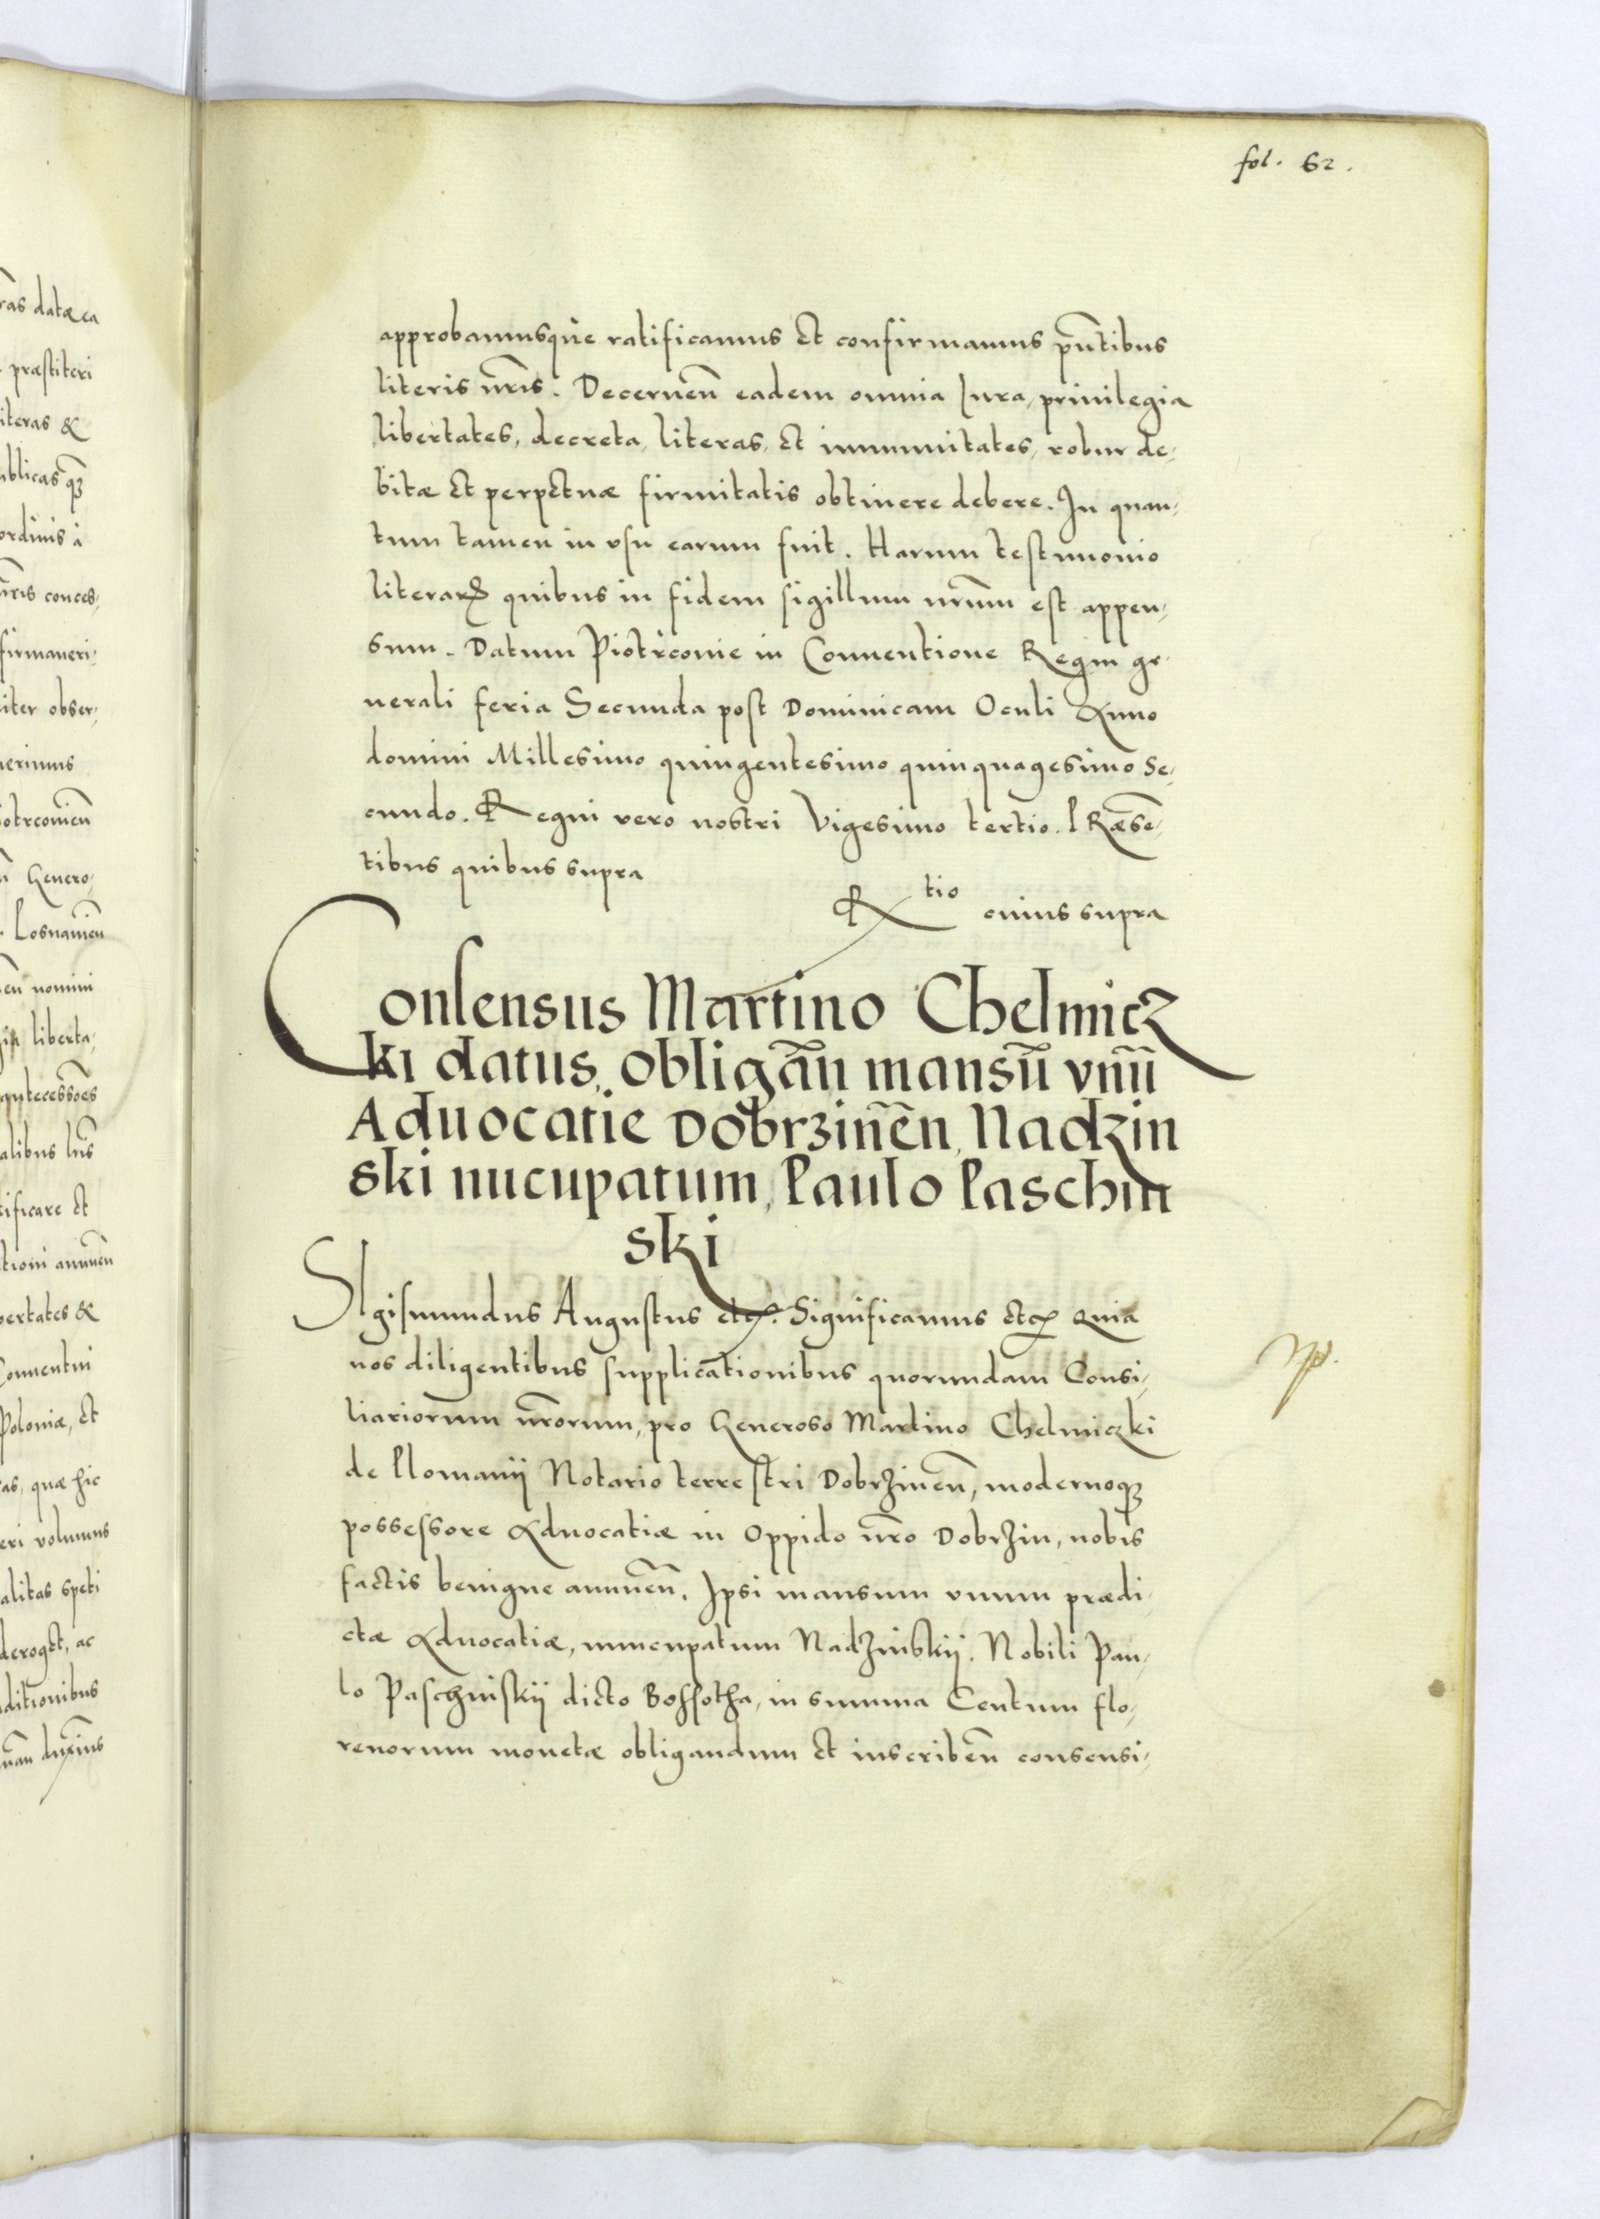 fol. 62.
approbamusque ratificamus et confirmamus pñtibus
literis ñris. Decerneñ eadem omnia Iura, priuilegia
libertates, decreta, literas, et immunitates, robur de,
bitæ et perpetuæ firmitatis obtinere debere. In quan,
tum tamen in vsu earum fuit. Harum testimonio
literarꝝ quibus in fidem sigillum nr̃um est appen,
sum. Datum Piotrconie in Conuentione Regni ge,
nerali feria Secunda post Dominicam Oculi Anno
domini Millesimo quingentesimo quinquagesimo Se,
cundo. Regni vero nostri Vigesimo tertio. PRæsẽ,
tibus quibus supra
Rtio cuius supra
Consensus Martino Chelmicz
ki datus, obligañ mansũ vnũ
Aduocatie Dobrzinẽn, Nadzin
ski nucupatum, Paulo Paschin
ski
SIgismundus Augustus etcꝭ. Significamus etcꝭ Quia
nos diligentibus supplicationibus quorundam Consi,
liariorum nr̃orum, pro Generoso Martino Chelmiczki
de Plomanij Notario terrestri Dobrzineñ, modernoqꝫ
possessore Aduocatiæ in Oppido nr̃o Dobrzin, nobis
factis benigne annueñ, Ipsi mansum vnum prædi,
ctæ Aduocatiæ, nuncupatum Nadzinskij. Nobili Pau,
lo Paschinskij dicto Bossotha, in summa Centum flo,
renorum monetæ obligandum et inscribeñ consensi,
ras datæ ca
præstiteri
iteras &
ublicas qꝫ
ordinis a
ñris conces,
firmaueri,
iter obser,
uerimus
iotrconieñ
Genero,
Posnanieñ
nomini
liberta,
antecessões
alibus
ificare et
tioni annueñ
bertates &
Conuentui
Poloniæ, et
as, quæ hic
eri volumus
alitas speti
deroget, ac
ditionibus
duximus